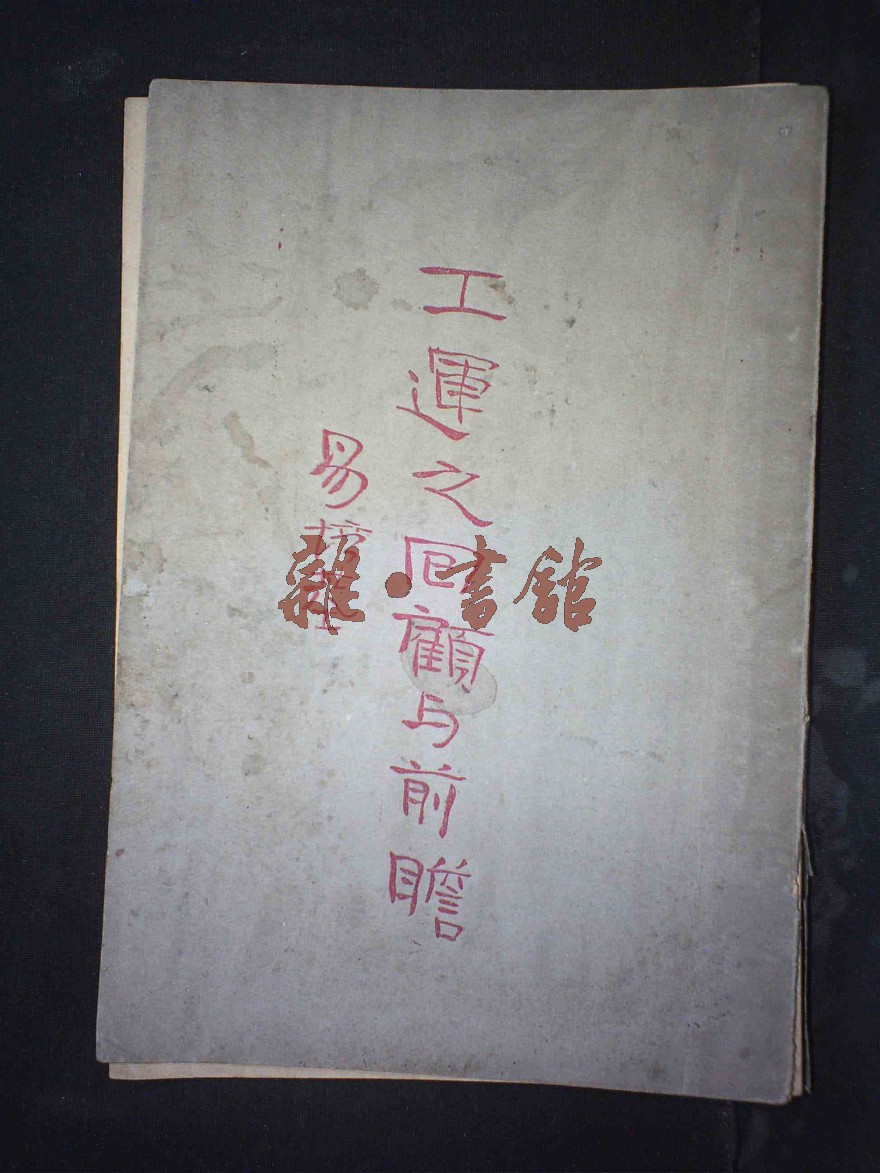 工運之回顧与前瞻
易
雜·書館